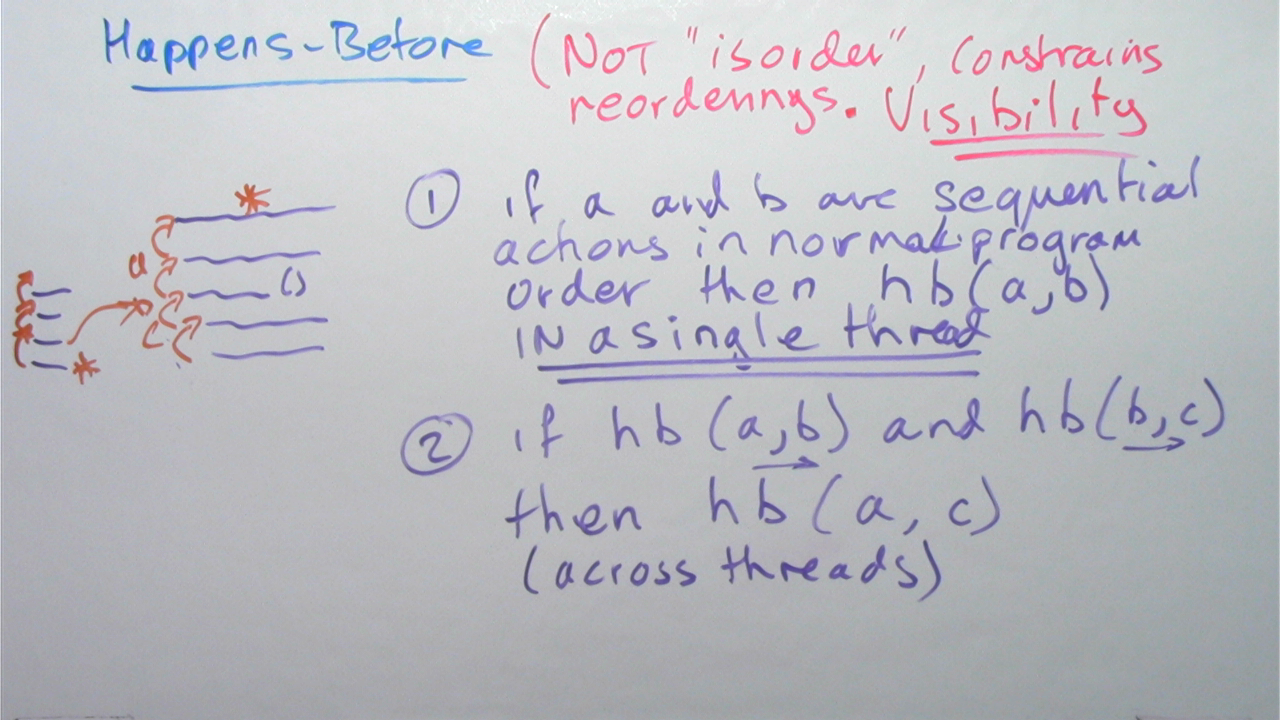 Happens-Before (Not "isorder", constrains
reorderings. Visibility
① if a and b are sequential
actions in normal program
order then hb(a,b)
IN a single thread
② if hb (a,b) and hb(b,c)
then hb(a, c)
(across threads)
()